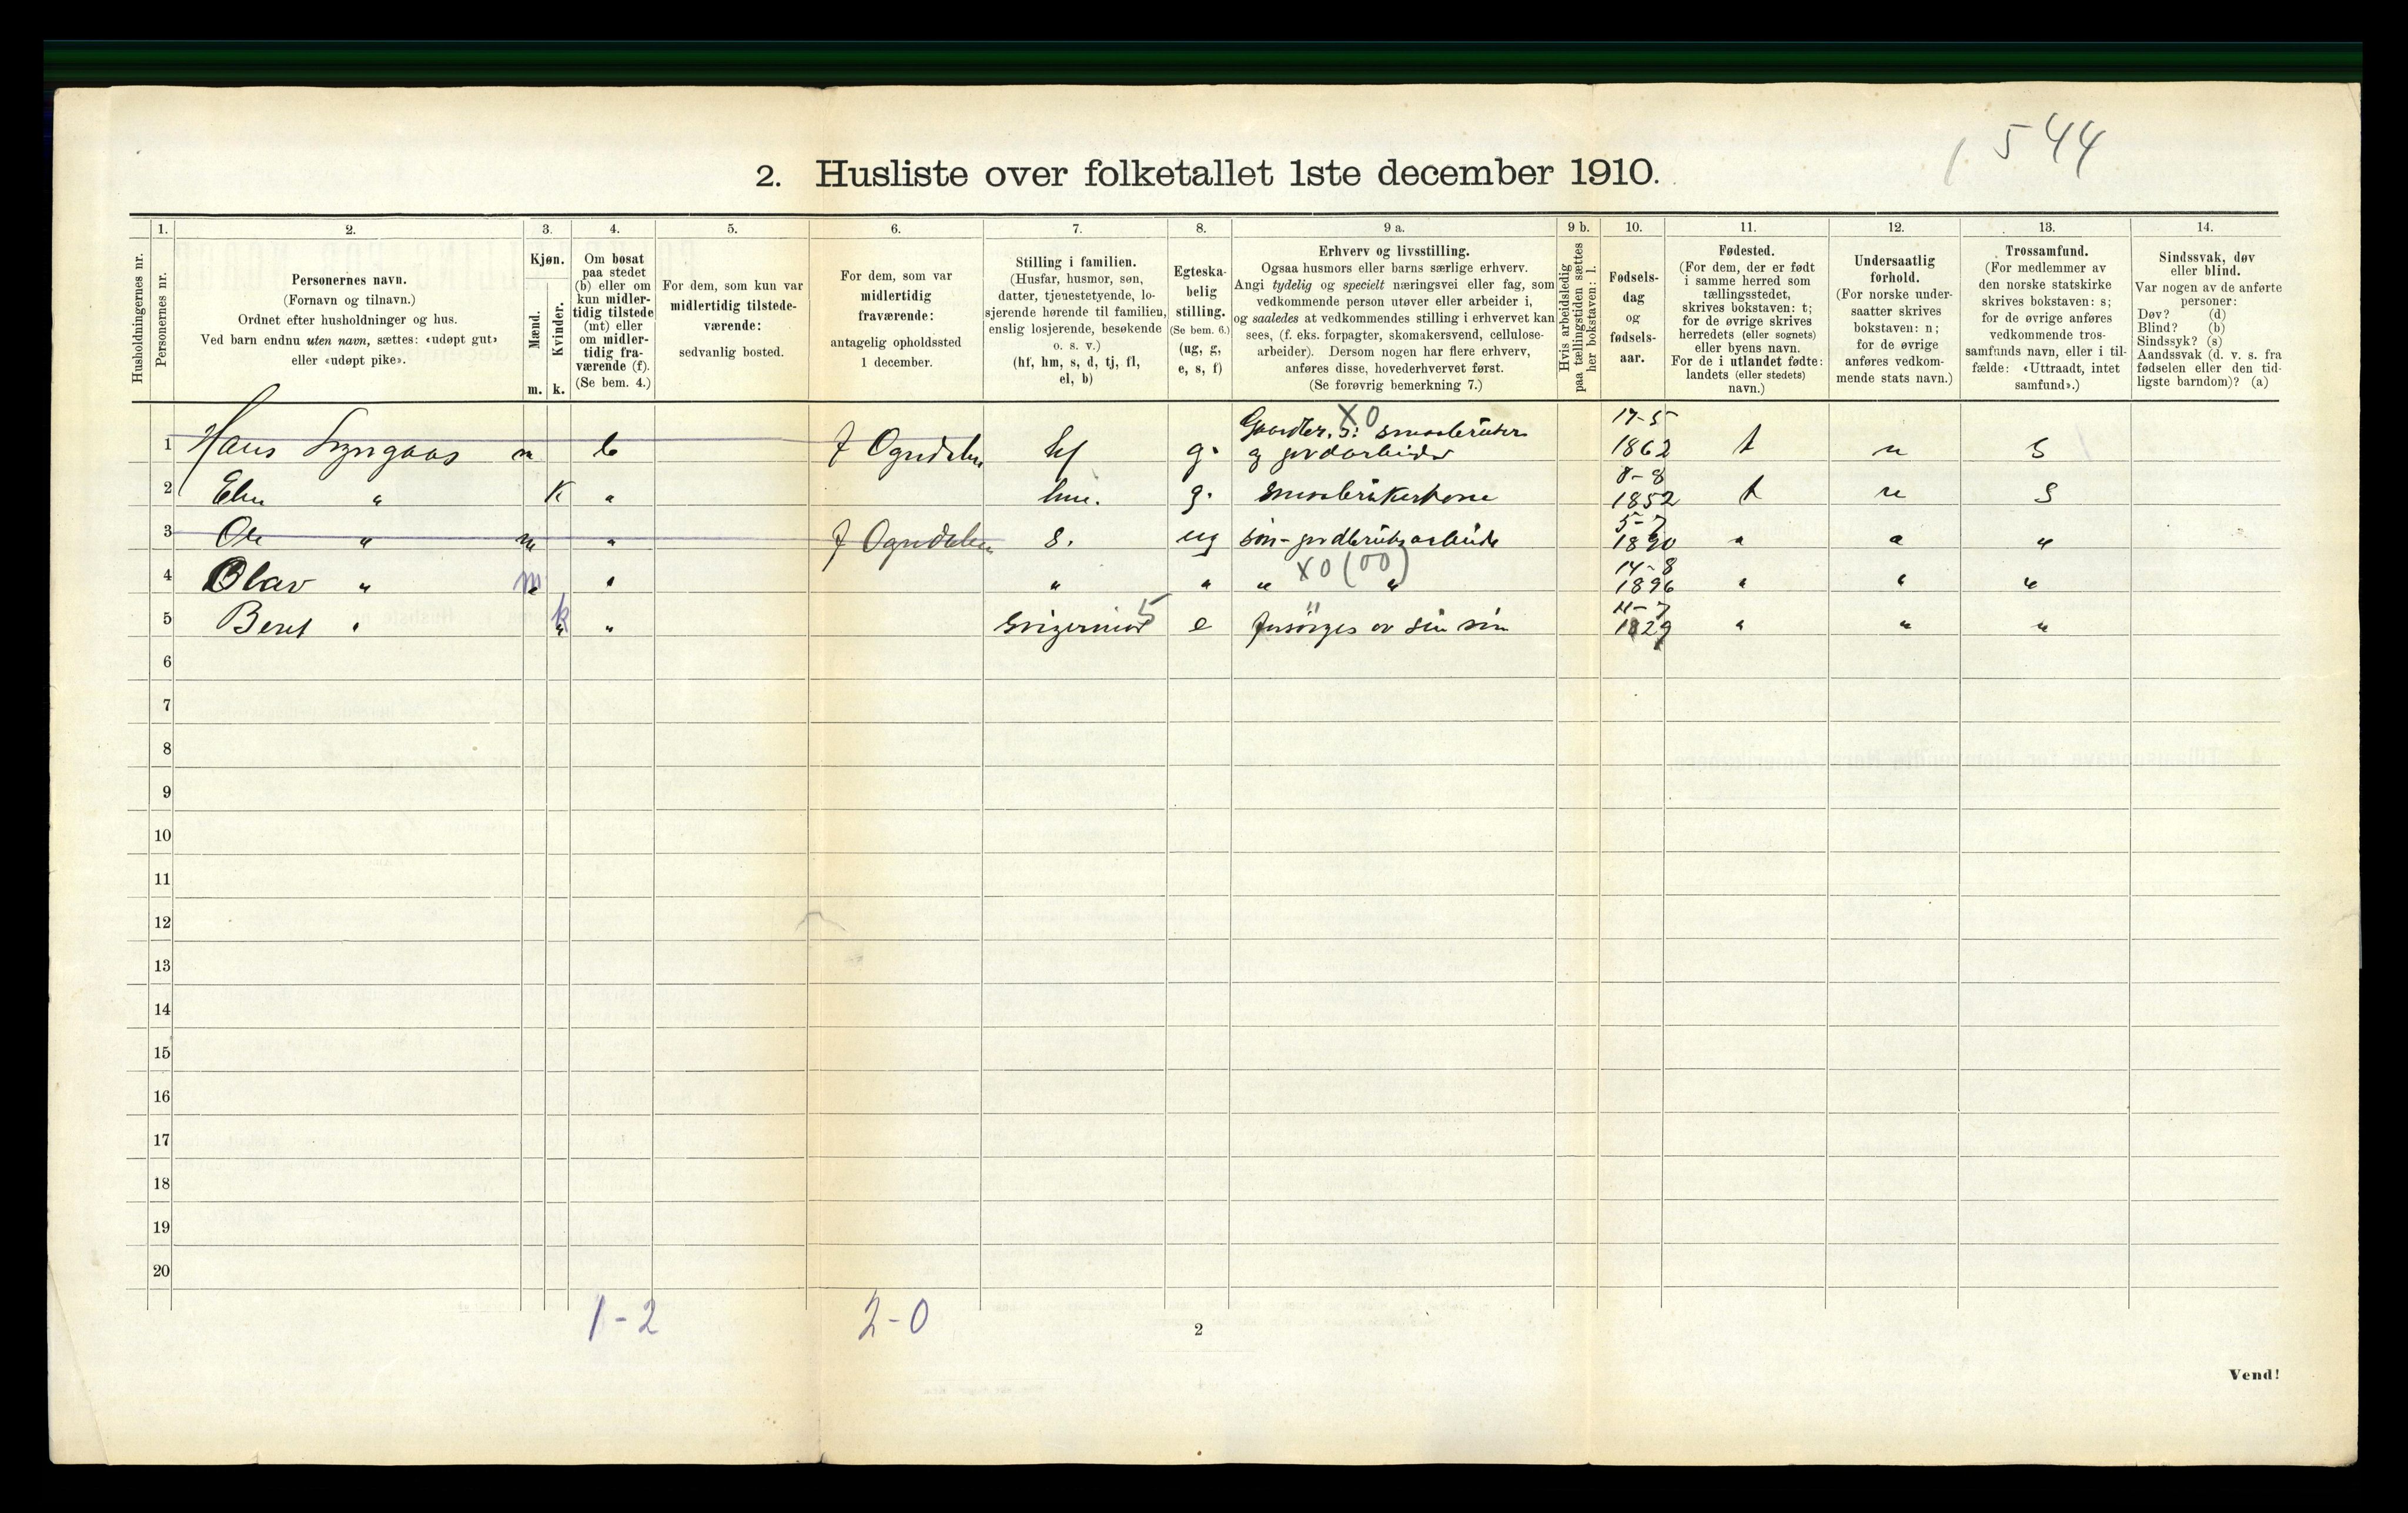 1 544
2. Husliste over folketallet 1ste december 1910.
1. 2. 3. 4. 5. 6. 7. 8. 9 a. 9 b. 10. 11. 12. 13. 14.
Husholdningernes nr.
Personernes nr.
Personernes navn.
(Fornavn og tilnavn.)
Ordnet efter husholdninger og hus.
Ved barn endnu uten navn, sættes: «udøpt gut»
eller «udøpt pike».
Kjøn.
Mænd.
Kvinder.
m. k.
Om bosat
paa stedet
(b) eller om
kun midler-
tidig tilstede
(mt) eller
om midler-
tidig fra-
værende (f).
(Se bem. 4.)
For dem, som kun var
midlertidig tilstede-
værende:
sedvanlig bosted.
For dem, som var
midlertidig
fraværende:
antagelig opholdssted
1 december.
Stilling i familien.
(Husfar, husmor, søn,
datter, tjenestetyende, lo-
sjerende hørende til familien,
enslig losjerende, besøkende
o. s. v.)
(hf, hm, s, d, tj, fl,
el, b)
Egteska-
belig
stilling.
(Se bem. 6.)
(ug, g,
e, s, f)
Erhverv og livsstilling.
Ogsaa husmors eller barns særlige erhverv.
Angi tydelig og specielt næringsvei eller fag, som
vedkommende person utøver eller arbeider i,
og saaledes at vedkommendes stilling i erhvervet kan
sees, (f. eks. forpagter, skomakersvend, cellulose-
arbeider). Dersom nogen har flere erhverv,
anføres disse, hovederhvervet først.
(Se forøvrig bemerkning 7.)
Hvis arbeidsledig
paa tællingstiden sættes
her bokstaven: l.
Fødsels-
dag
og
fødsels-
aar.
Fødested.
(For dem, der er født
i samme herred som
tællingsstedet,
skrives bokstaven: t;
for de øvrige skrives
herredets (eller sognets)
eller byens navn.
For de i utlandet fødte:
landets (eller stedets)
navn.)
Undersaatlig
forhold.
(For norske under-
saatter skrives
bokstaven: n;
for de øvrige
anføres vedkom-
mende stats navn.)
Trossamfund.
(For medlemmer av
den norske statskirke
skrives bokstaven: s;
for de øvrige anføres
vedkommende tros-
samfunds navn, eller i til-
fælde: «Uttraadt, intet
samfund».)
Sindssvak, døv
eller blind.
Var nogen av de anførte
personer:
Døv? (d)
Blind? (b)
Sindssyk? (s)
Aandssvak (d. v. s. fra
fødselen eller den tid-
ligste barndom)? (a)
X0 17-5
1 Hans m b f Ogndalen hf g. smaabruker 1862 t n s
og jordarbeider
8-8
2 " K " hm. g. smaabrukerkone 1852 t n s
5-7
3 Ole " m " f Ogndalen s. ug søn-jordbruksarbeide 1890 " " "
X0 (00) 14-8
4 Olav " m " " " " " 1896 " " "
5 11-7
5 Beret " k " svigermor e forsørges av sin søn 1829 " " "
6
7
8
9
10
11
12
13
14
15
16
17
18
19
20
1-2 2-0
2
Vend!